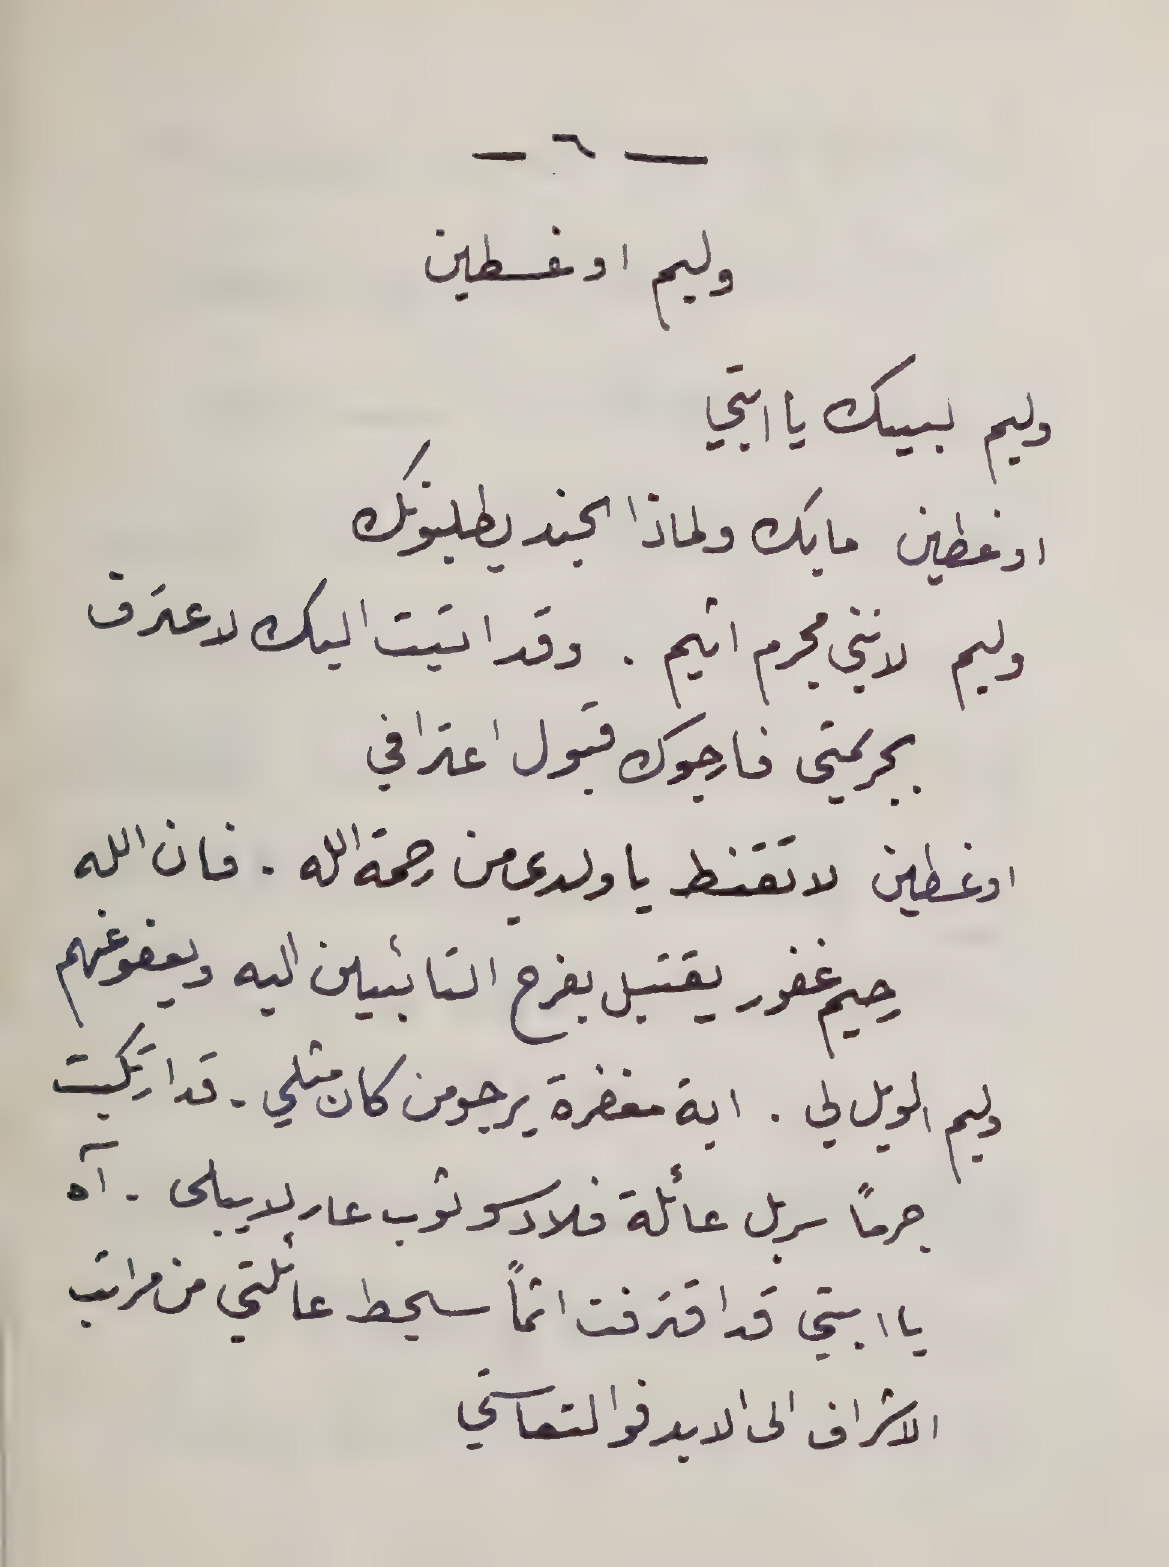 — ٦ —
وليم اوغسطين
وليم لبيك يا ابتي
اوغطين مابك ولماذا الجند يطلبونك
وليم لانني مجرم اثيم . وقد اتيت اليك لاعترف
بجريمتي فارجوك قبول اعترافي
اوغسطين لا تقنط يا ولدي من رحمة الله . فان الله
رحيم غفور يقتبل بفرح التائبين اليه ويعفو عنهم
وليم الويل لي . اية مغفرة يرجو من كان مثلي . قد ارتكبت
جرماً سربل عائلة فلادسو ثوب عار لا يبلى . آه
يا ابتي قد اقترفت اثماً سيحط عائلتي من مراتب
الاشراف الى الابد فوا لتعاستي